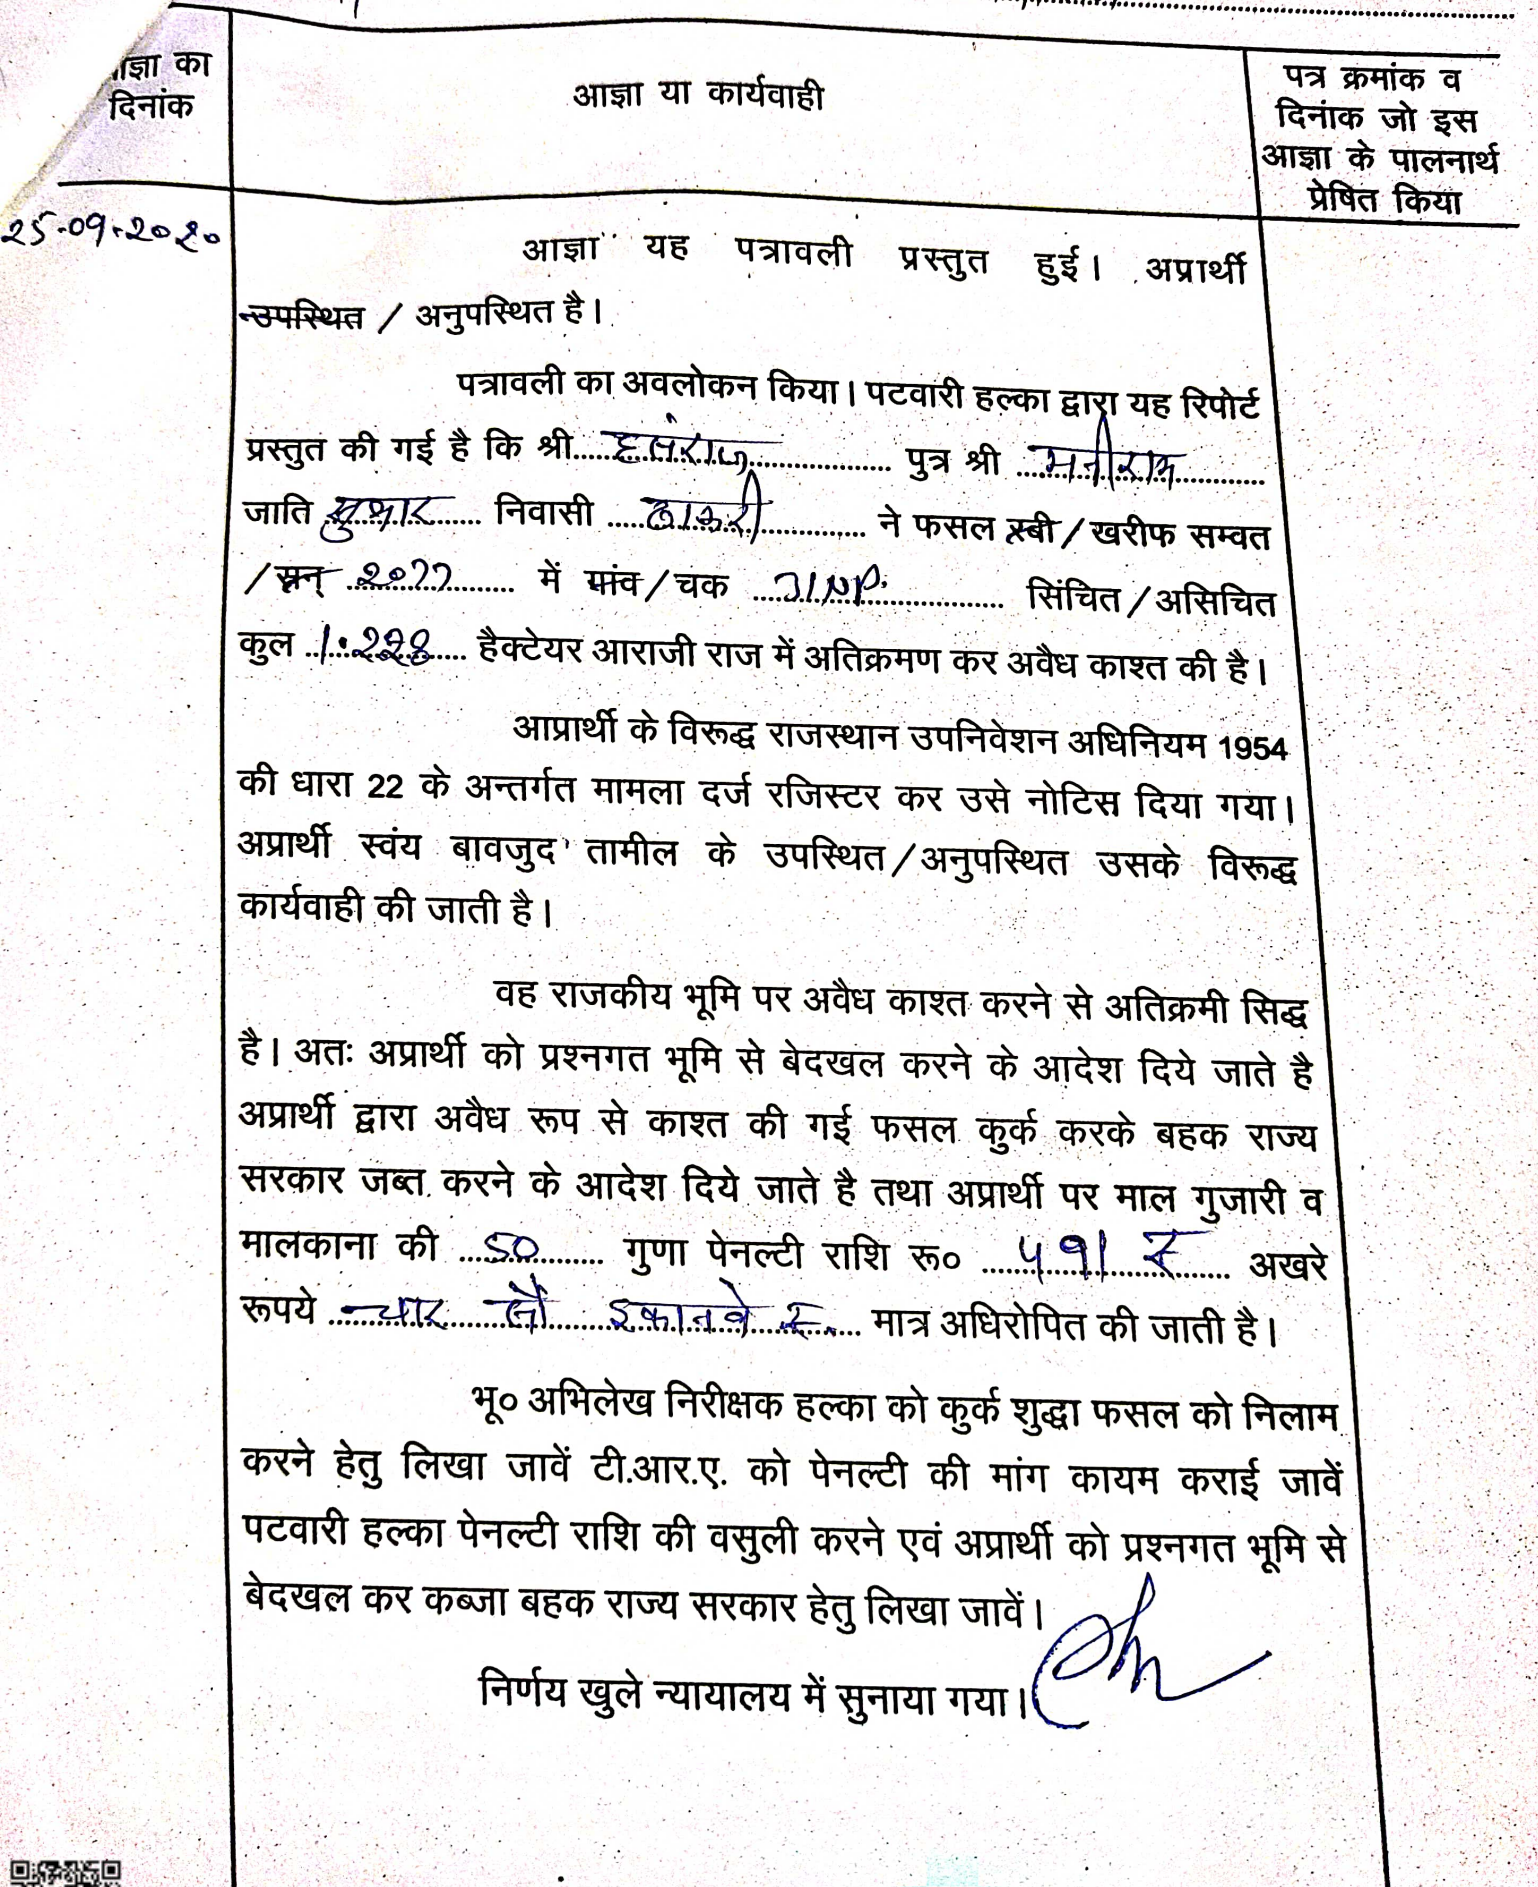 आज्ञा का
दिनांक
आज्ञा या कार्यवाही
पत्र क्रमांक व
दिनांक जो इस
आज्ञा के पालनार्थ
प्रेषित किया
25-09-2020
आज्ञा यह पत्रावली प्रस्तुत हुई। अप्रार्थी
उपस्थित / अनुपस्थित है।
पत्रावली का अवलोकन किया। पटवारी हल्का द्वारा यह रिपोर्ट
प्रस्तुत की गई है कि श्री हंसराज पुत्र श्री मनीराम
जाति निवासी ने फसल रबी / खरीफ सम्वत
/ सन् 2077 में गांव / चक सिंचित / असिचित
कुल 1.228 हैक्टेयर आराजी राज में अतिक्रमण कर अवैध काश्त की है।
आप्रार्थी के विरूद्ध राजस्थान उपनिवेशन अधिनियम 1954
की धारा 22 के अन्तर्गत मामला दर्ज रजिस्टर कर उसे नोटिस दिया गया।
अप्रार्थी स्वंय बावजुद तामील के उपस्थित / अनुपस्थित उसके विरूद्ध
कार्यवाही की जाती है।
वह राजकीय भूमि पर अवैध काश्त करने से अतिक्रमी सिद्ध
है। अतः अप्रार्थी को प्रश्नगत भूमि से बेदखल करने के आदेश दिये जाते है
अप्रार्थी द्वारा अवैध रूप से काश्त की गई फसल कुर्क करके बहक राज्य
सरकार जब्त करने के आदेश दिये जाते है तथा अप्रार्थी पर माल गुजारी व
मालकाना की 50 गुणा पेनल्टी राशि रू० ४९१ रु अखरे
रूपये चार सौ इकानवे रु. मात्र अधिरोपित की जाती है।
भू० अभिलेख निरीक्षक हल्का को कुर्क शुद्धा फसल को निलाम
करने हेतु लिखा जावें टी.आर.ए. को पेनल्टी की मांग कायम कराई जावें
पटवारी हल्का पेनल्टी राशि की वसुली करने एवं अप्रार्थी को प्रश्नगत भूमि से
बेदखल कर कब्जा बहक राज्य सरकार हेतु लिखा जावें।
निर्णय खुले न्यायालय में सुनाया गया।